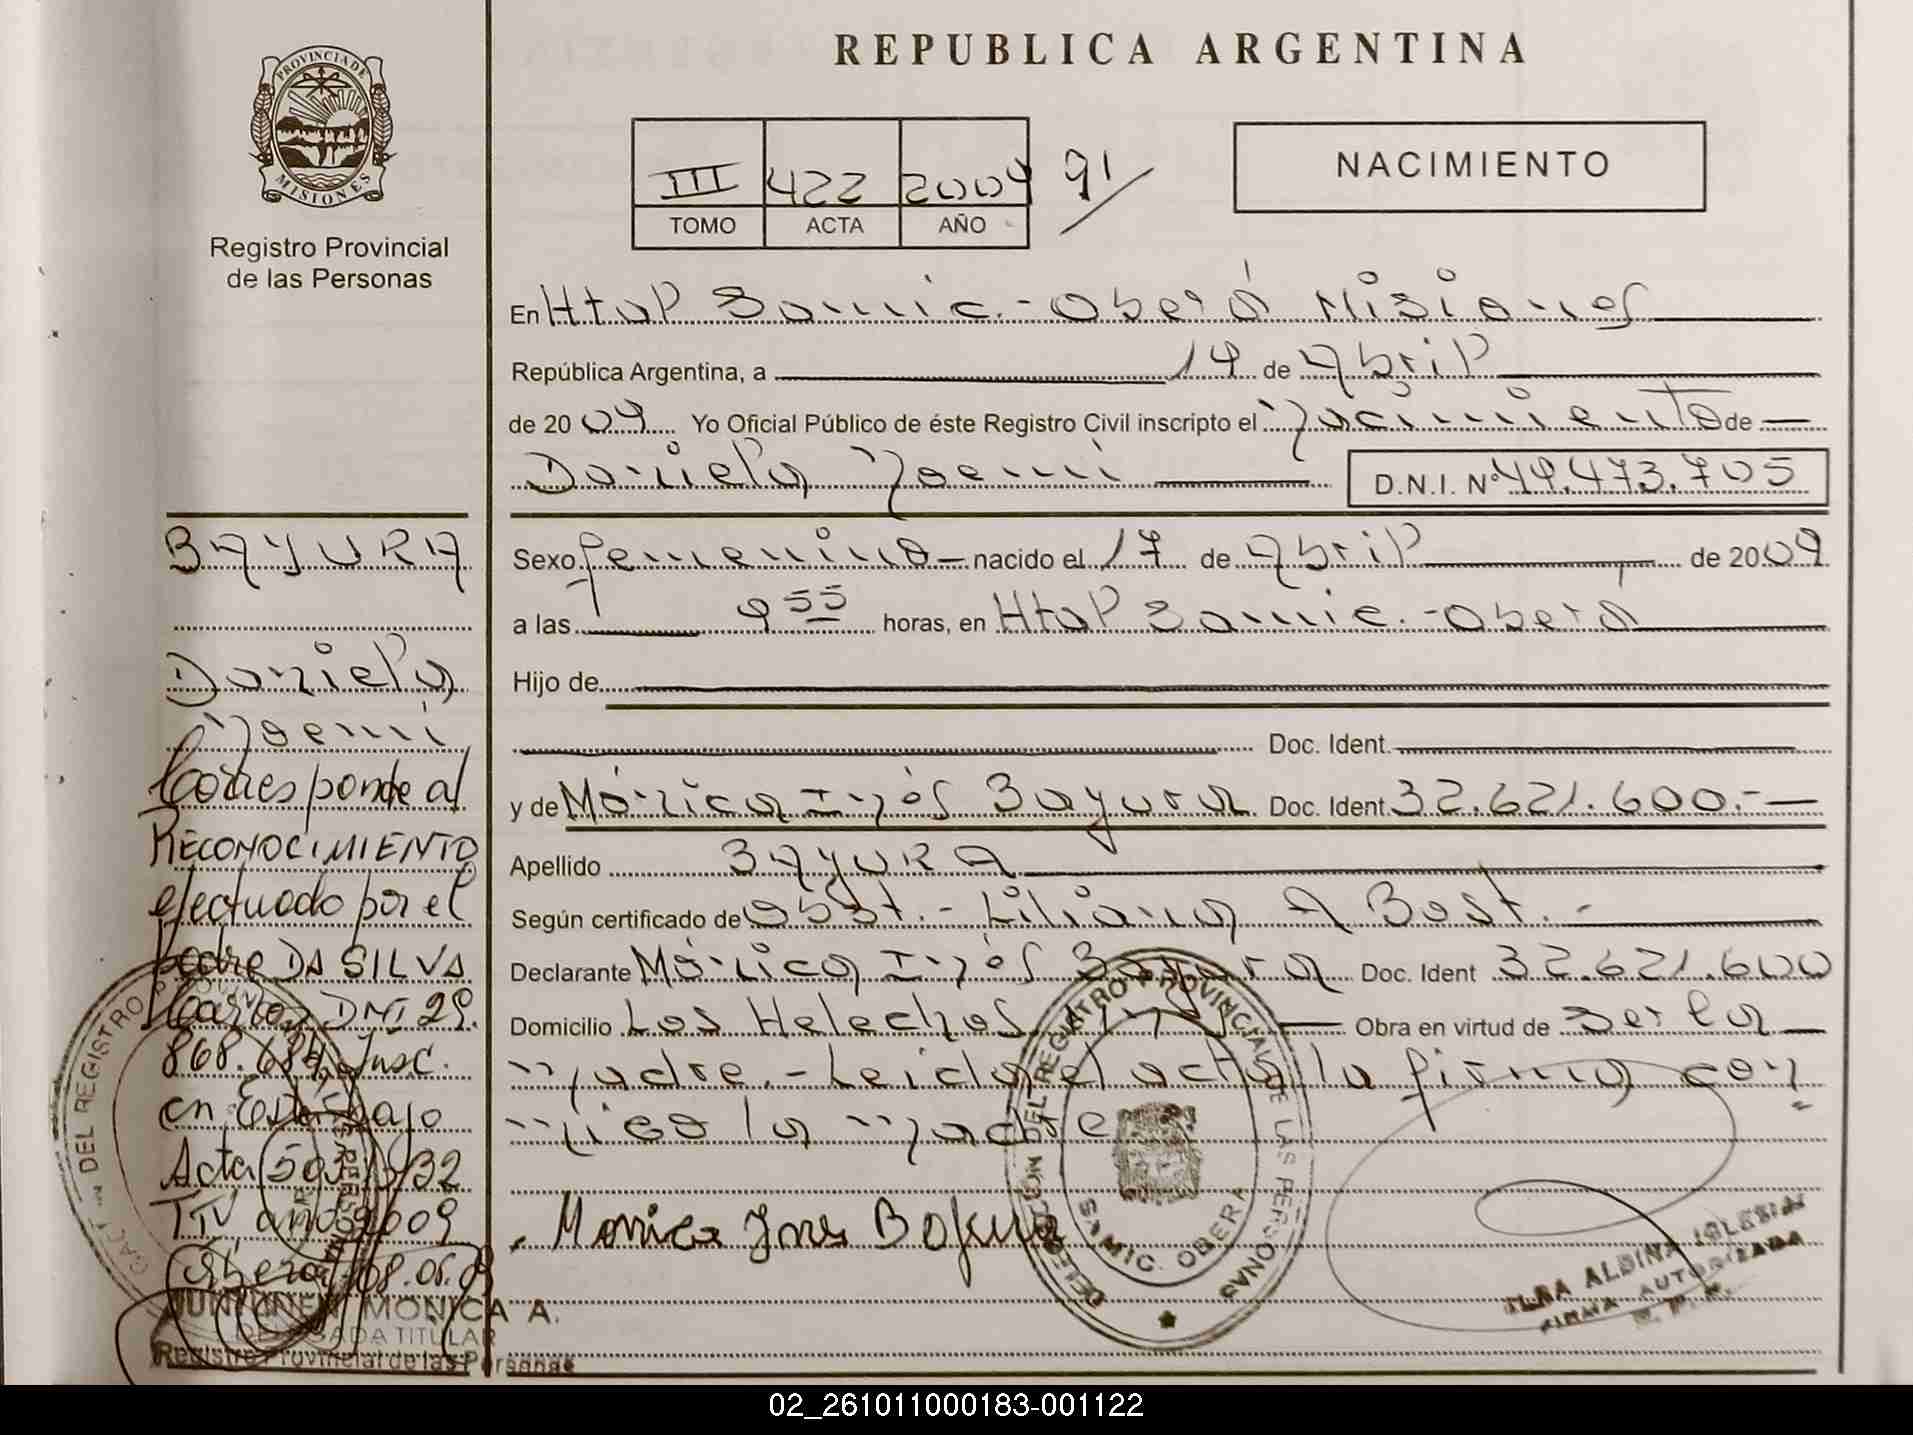 PROVINCIA DE
MISIONES
Registro Provincial
de las Personas
REPUBLICA ARGENTINA
III 422 2009 91/
TOMO ACTA AÑO
NACIMIENTO
En Htal Samic.- Oberá Misiones
República Argentina, a 19 de Abril
de 2009 Yo Oficial Público de éste Registro Civil inscripto el Nacimiento de
Daniela Noemi D.N.I. Nº 49.473.705
Sexo femenino nacido el 17 de Abril de 2009
a las 9 55 horas, en Htal Samic.- Oberá
Hijo de
Doc. Ident.
y de Mónica Inés Bayura Doc. Ident. 32.621.600.-
Apellido BAYURA
Según certificado de Obst.- Liliana A Bast.-
Declarante Mónica Inés Bayura Doc. Ident 32.621.600
Domicilio Los Helechos Obra en virtud de Ser la
madre.- Leida el acta la firma con
migo la madre
Monica Ines Bayura
BAYURA
Daniela
Noemi
Corresponde al
RECONOCIMIENTO
efectuado por el
Padre DA SILVA
Carlos DNI 29.
868.684 Insc.
en Esta bajo
Acta
año 2009
Oberá 08.05.09
MONICA A.
DELEGADA TITULAR
Registro Provincial de las Personas
DELEGACION DEL REGISTRO PROVINCIAL DE LAS PERSONAS
SAMIC. OBERA
ALDINA IGLESIAS
FIRMA AUTORIZADA
R. P. P.
02_261011000183-001122